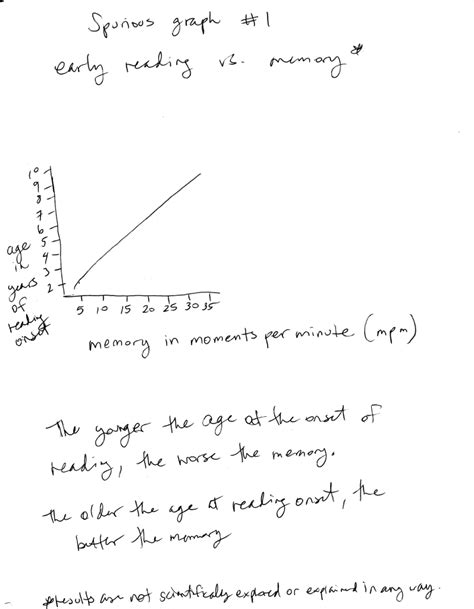 Spurious graph #1
early reading vs. memory*
10
9
8
7
6
5
4
3
2
age
in
years
of
reading
onset
5 10 15 20 25 30 35
memory in moments per minute (mpm)
The younger the age at the onset of
reading, the worse the memory.
The older the age at reading onset, the
better the memory
*results are not scientifically explored or explained in any way.